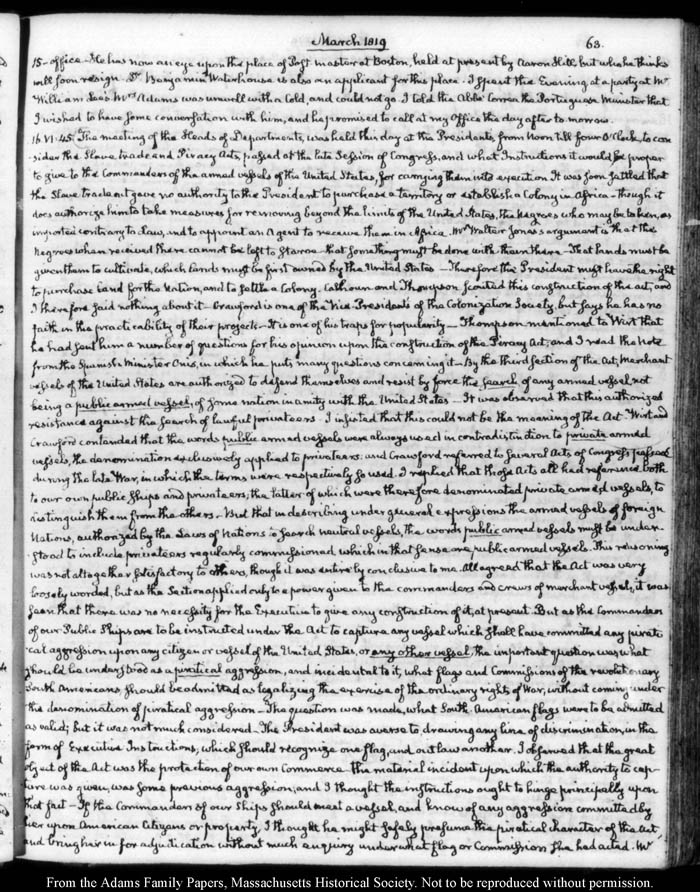 March 1819
63.
15- office. He has now an eye upon the place of Post master at Boston, held at present by Aaron Hill but who he thinks
will soon resign. Dr Benjamin Waterhouse is also an applicant for this place. I spent the Evening at a party at Mr
William Lee's. Mrs Adams was unwell with a cold, and could not go. I told the Abbé Correa the Portuguese Minister that
I wished to have some conversation with him, and he promised to call at my Office the day after to morrow.
16. VI:45. The meeting of the Heads of Departments, was held this day at the Presidents, from Noon till four O'Clock, to con-
sider the Slave trade and Piracy Acts, passed at the late Session of Congress, and what Instructions it would be proper
to give to the Commanders of the armed vessels of the United States, for carrying them into execution. It was soon settled that
the Slave trade act gave no authority to the President to purchase a territory or establish a Colony in Africa - though it
does authorize him to take measures for removing beyond the limits of the United States, the Negroes who may be taken, as
imported contrary to Law, and to appoint an Agent to receive them in Africa. Mr Walter Jones's argument is that the
Negroes when received there cannot be left to starve - that something must be done with them there - That lands must be
given them to cultivate, which lands must be first owned by the United States - Therefore the President must have the right
to purchase land for the Nation, and to settle a Colony. Calhoun and Thompson scouted this construction of the act, and
I therefore said nothing about it - Crawford is one of the Vice-Presidents of the Colonization Society, but says he has no
faith in the practicability of their project - It is one of his traps for popularity - Thompson mentioned to Wirt that
he had sent him a number of questions for his opinion upon the construction of the Piracy Act, and I read the Note
from the Spanish Minister Onis, in which he puts many questions concerning it - By the third section of the Act, Merchant
vessels of the United States are authorized to defend themselves and resist by force the search of any armed vessel not
being a public armed vessel, of some nation in amity with the United States - It was observed that this authorized
resistance against the search of lawful privateers - I insisted that this could not be the meaning of the Act - Wirt and
Crawford contended that the words public armed vessels were always used in contradistinction to private armed
vessels, the denomination exclusively applied to privateers: and Crawford referred to several Acts of Congress passed
during the late War, in which the terms were respectively so used. I replied that those Acts all had reference both
to our own public ships and privateers; the latter of which were therefore denominated private armed vessels, to
distinguish them from the others. But that in describing under general expressions the armed vessels of foreign
Nations, authorized by the Laws of Nations to search neutral vessels, the words public armed vessels must be under-
stood to include privateers regularly commissioned which in that sense are public armed vessels. This reasoning
was not altogether satisfactory to others, though it was entirely conclusive to me. All agreed that the Act was very
loosely worded, but as the section applied only to a power given to the commanders and crews of merchant vessels, it was
seen that there was no necessity for the Executive to give any construction of it, at present. But as the Commanders
of our Public Ships are to be instructed under the Act to capture any vessel which shall have committed any pirati-
cal aggression upon any citizen or vessel of the United States, or any other vessel, the important question was, what
should be understood as a piratical aggression, and incidental to it, what flags and Commissions of the revolutionary
South Americans, should be admitted as legalizing the exercise of the ordinary rights of War, without coming under
the denomination of piratical aggression - The question was made, what South-American flags were to be admitted
as valid; but it was not much considered. The President was averse to drawing any line of discrimination, in the
form of Executive Instructions, which should recognize one flag, and outlaw another. I observed that the great
object of the Act was the protection of our own Commerce. The material incident upon which the authority to cap-
ture was given, was some previous aggression, and I thought the instructions ought to hinge principally upon
that fact - If the Commanders of our Ships should meet a vessel, and know of any aggression committed by
her upon American Citizens or property, I thought he might safely presume the piratical character of the Act
and bring her in for adjudication without much enquiry under what flag or Commission she had acted. Mr
From the Adams Family Papers, Massachusetts Historical Society. Not to be reproduced without permission.